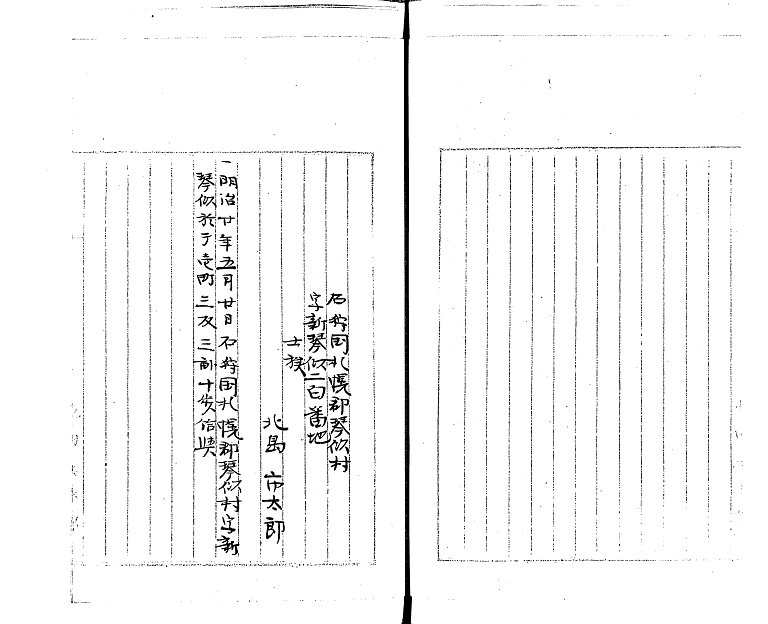 石狩国札幌郡琴似村
字新琴似二百番地
士族
北島 市太郎
一明治廿年五月廿日石狩国札幌郡琴似村字新
琴似於テ壱町三反三畝十歩